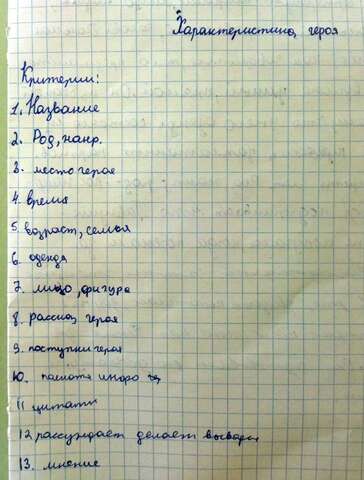 Характеристика героя
Критерии:
1. Название
2. Род, жанр.
3. место героя
4. время
5. возраст, семья
6. одежда
7. лицо, фигура
8. рассказ героя
9. поступки героя
10.
11 цитаты
12 рассуждает делает выводы
13. мнение